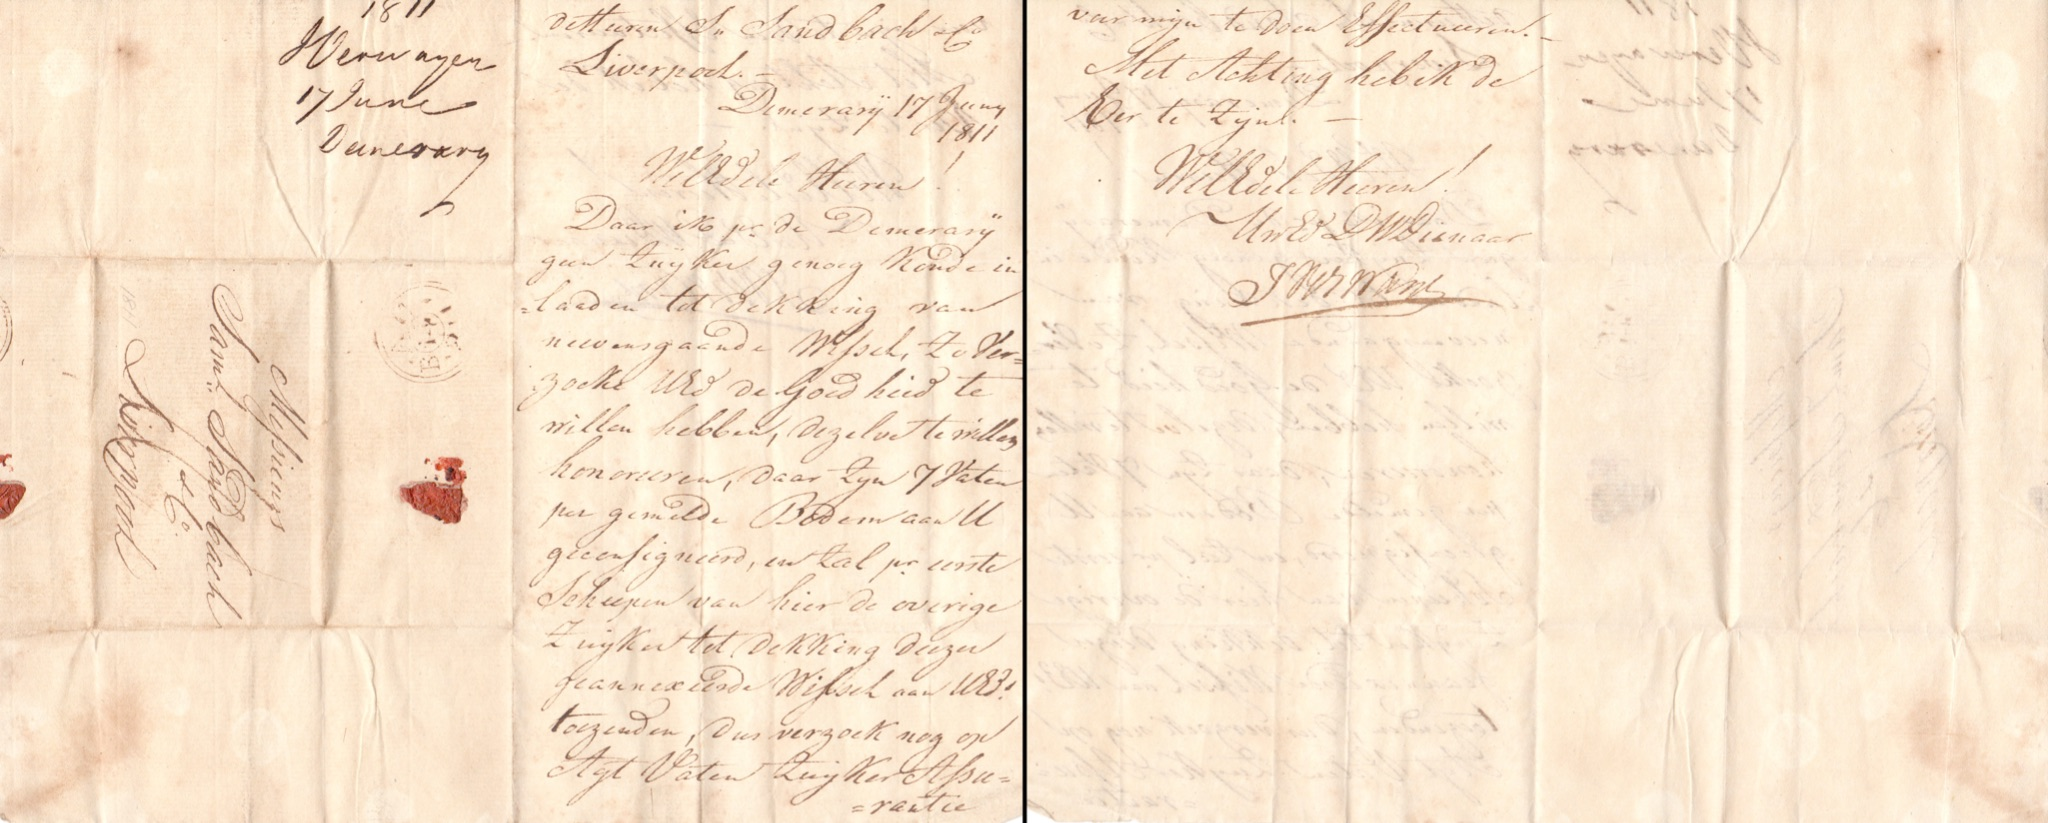 1811
JVerwayen
17 June
Demerary
Messieurs
Saml. Sandbach
& Co.
Liverpool
1811
de Heeren Sl. Sandbach & Co
Liverpool. —
Demerarij 17 Juny
1811
WelEdele Heeren!
Daar ik pr. de Demerarij
geen Zuijker genoeg konde in
=laaden tot dekking van
nevensgaande Wissel, Zo Ver=
zoeke UEd de Goedheid te
willen hebben, dezelve te willen
honoreeren, daar Zyn 7 Vaten
per gemelde Bodem aan U
geconsigneerd, en Zal pr. eerste
Scheepen van hier de overige
Zuijker tot dekking deezer
geannexeerde Wissel aan UEd.
toezenden, dus verzoek nog op
Agt Vaten Zuijker Assu=
=rantie
voor mijn te doen Effectueeren. —
Met Achting heb ik de
Eer te Zijn. —
WelEdele Heeren!
UwEd DWDienaar